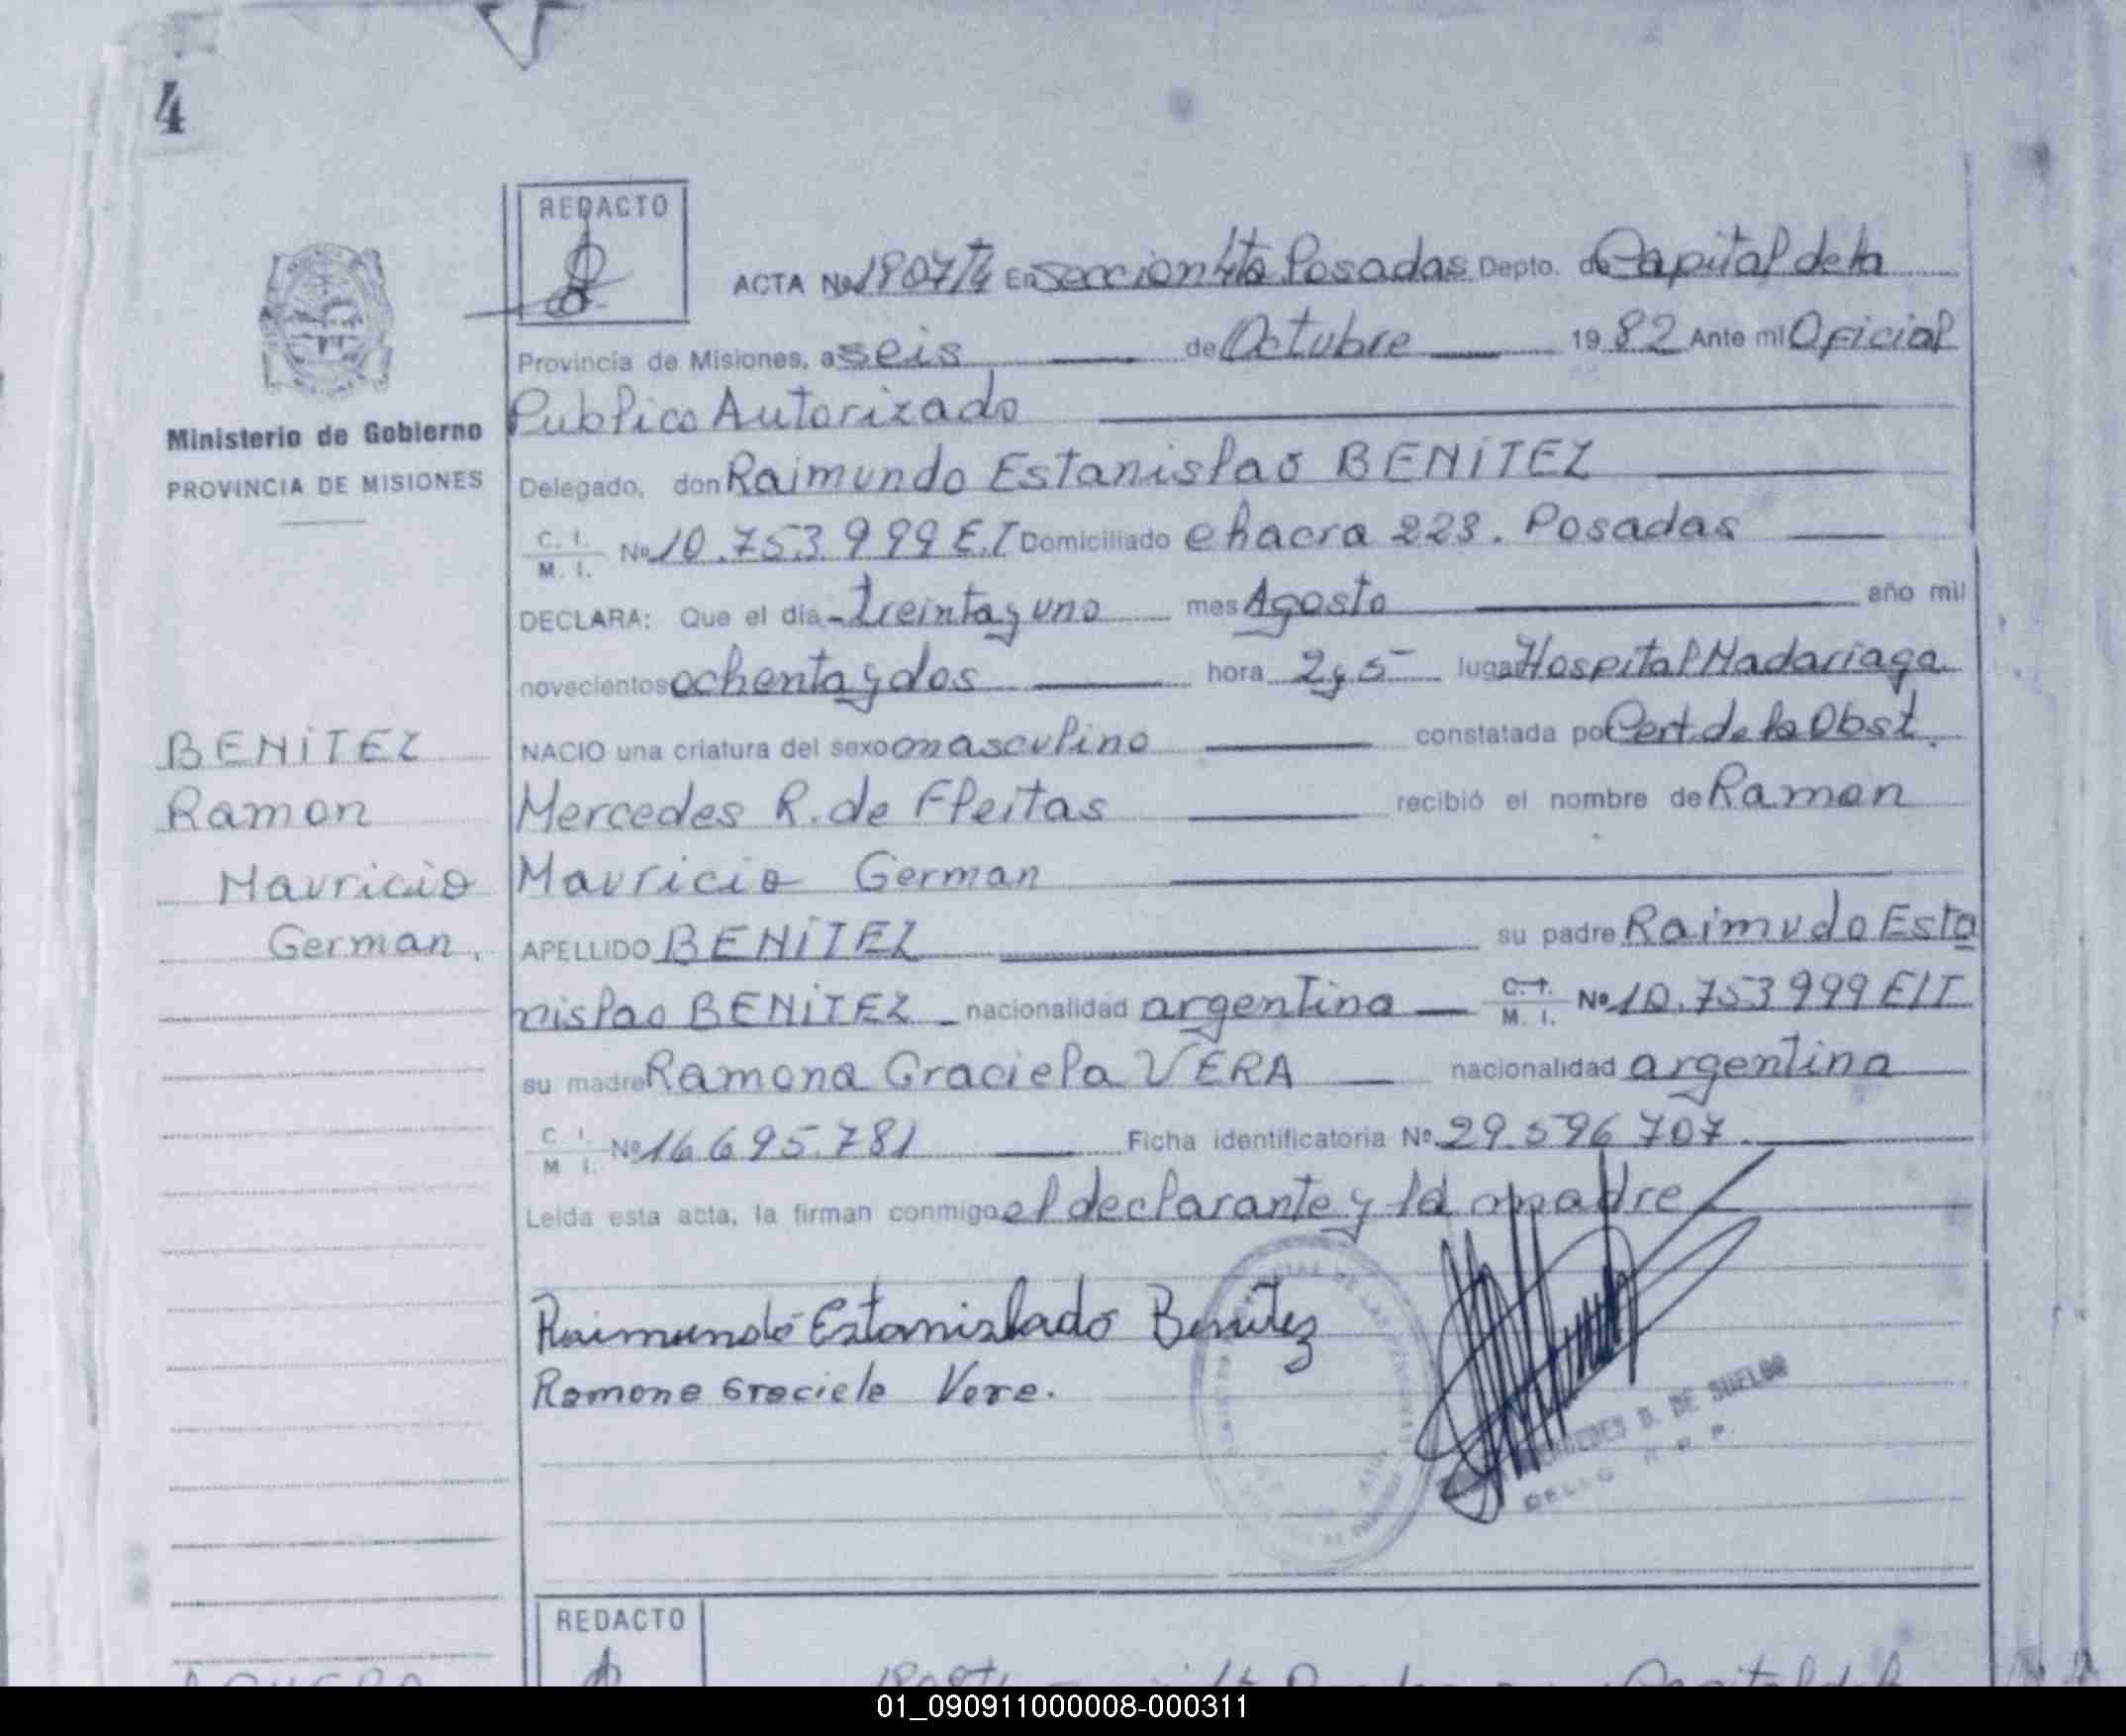 4
REDACTO
ACTA No 1807T4 En Seccion 4ta Posadas Depto. de Capital de la
Provincia de Misiones, a seis de Octubre 1982 Ante mi Oficial
Publico Autorizado
Ministerio de Gobierno
PROVINCIA DE MISIONES
Delegado, don Raimundo Estanislao BENITEZ
C. I. M. I. No 10.753.999 E.T Domiciliado chacra 223. Posadas
DECLARA: Que el día treinta y uno mes Agosto año mil
novecientos ochenta y dos hora 2 y 5 lugar Hospital Madariaga
NACIO una criatura del sexo masculino constatada por Cert. de la Obst.
Mercedes R. de Fleitas recibió el nombre de Ramon
Mauricio German
BENITEZ
Ramon
Mauricio
German.
APELLIDO BENITEZ su padre Raimudo Esta
nislao BENITEZ nacionalidad argentina C. I. M. I. No 10.753999 EIT
su madre Ramona Graciela VERA nacionalidad argentina
C I. M I. No 16.695.781 Ficha identificatoria No 29.596 707
Leída esta acta, la firman conmigo el declarante y la madre
Raimundo Estanislado Benitez
Ramona Graciela Vera.
B. DE SUELDO
REDACTO
01_090911000008-000311